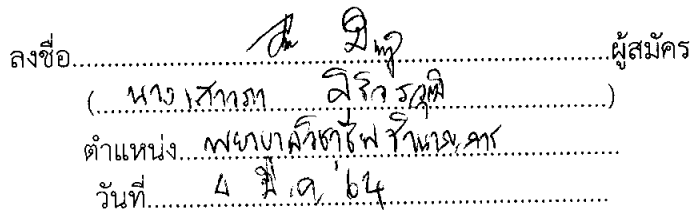 ลงชื่อ..........ผู้สมัคร
(นางเสาวภา)
ตำแหน่ง พยาบาลวิชาชีพชำนาญการ
วันที่ 4 มี.ค. 64